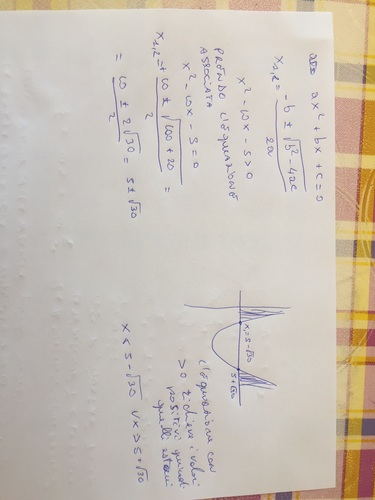 ax² + bx + c = 0
x₁,₂ = (-b ± √(b² - 4ac)) / 2a
x² - 10x - 5 > 0
PRENDO L'EQUAZIONE
ASSOCIATA
x² - 10x - 5 = 0
x₁,₂ = (+10 ± √(100 + 20)) / 2 =
= (10 ± 2√30) / 2 = 5 ± √30
x₁ = 5 - √30
5 + √30
L'equazione con
> 0 richiede i valori
positivi quindi
quelli esterni
x < 5 - √30 V x > 5 + √30